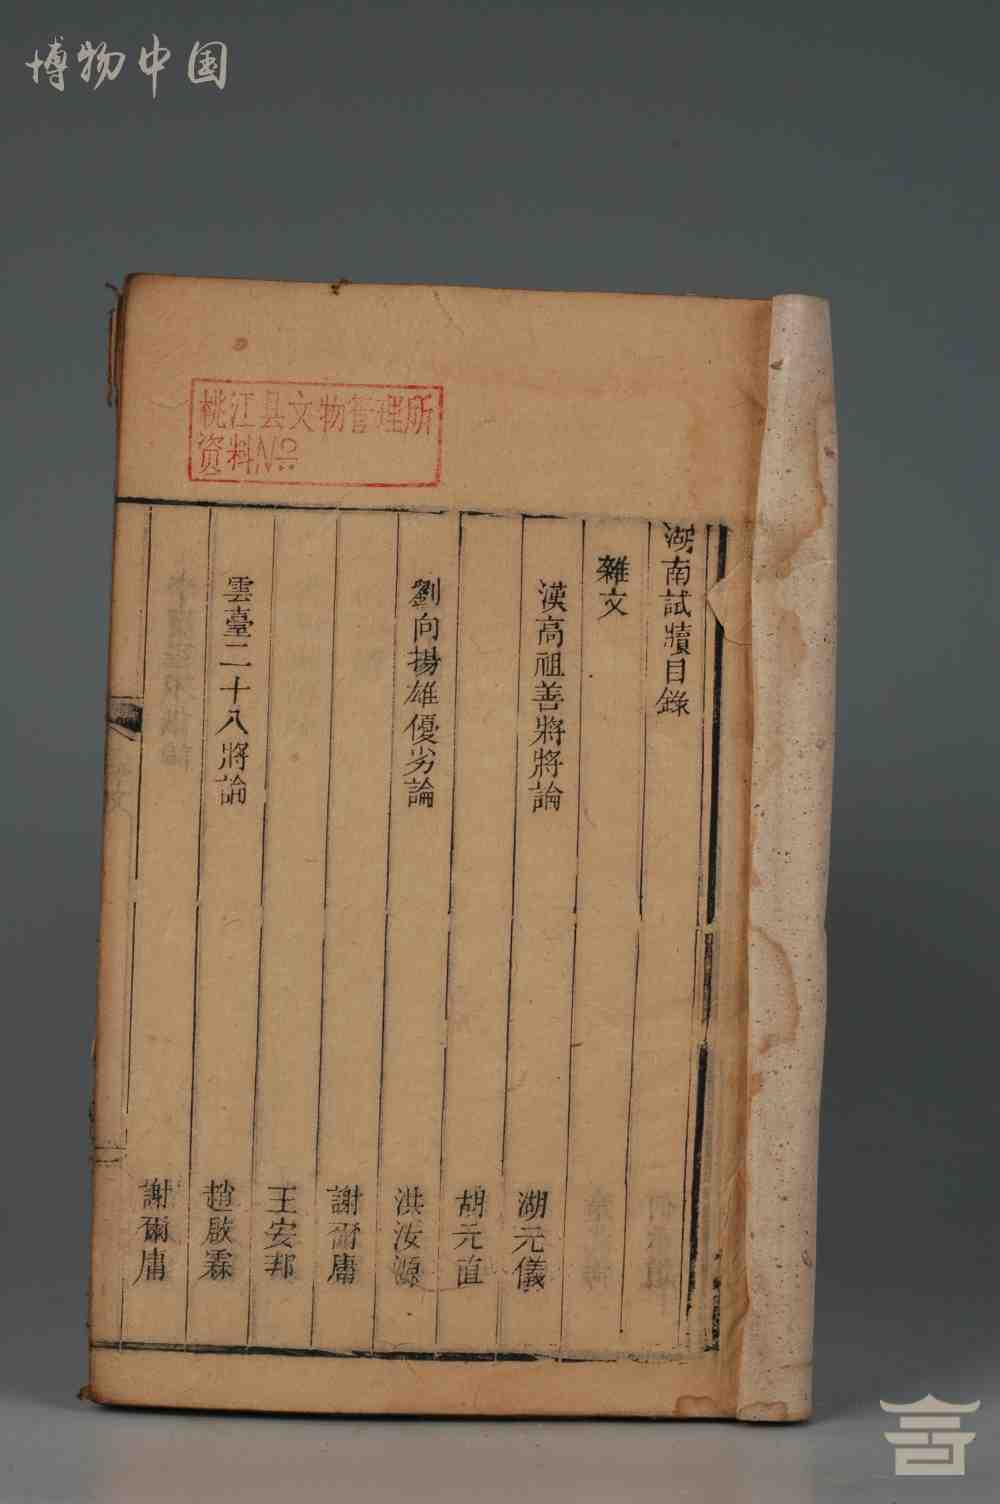 博物中国
桃江县文物管理所
资料№
湖南試牘目錄
雜文
漢高祖善將將論
湖元儀
胡元直
劉向揚雄優劣論
洪汝源
謝爾庸
王安邦
雲臺二十八將論
趙啟霖
謝爾庸